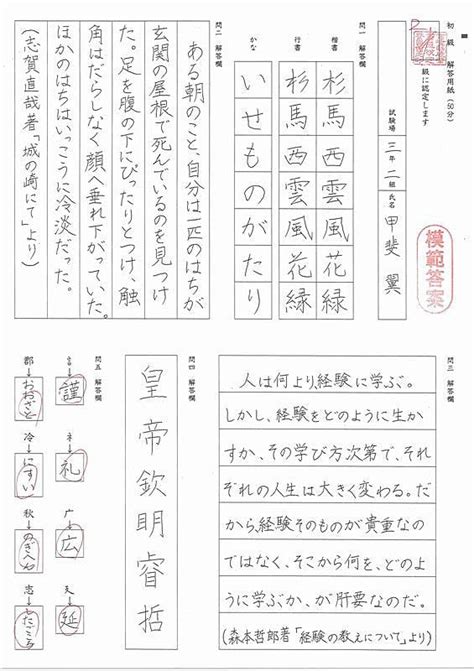 初級 解答用紙(60分)
級に認定します
試験場
三年二組
氏名
甲斐 翼
模範答案
問一 解答欄
楷書
杉馬西雲風花緑
行書
杉馬西雲風花緑
かな
いせものがたり
問二 解答欄
ある朝のこと、自分は一匹のはちが
玄関の屋根で死んでいるのを見つけ
た。足を腹の下にぴったりとつけ、触
角はだらしなく顔へ垂れ下がっていた。
ほかのはちはいっこうに冷淡だった。
(志賀直哉著「城の崎にて」より)
問三 解答欄
人は何より、経験に学ぶ。
しかし、経験をどのように生か
すか、その学び方次第で、それ
ぞれの人生は大きく変わる。だ
から経験そのものが貴重なの
ではなく、そこから何を、どのよ
うに学ぶか、が肝要なのだ。
(森本哲郎著「経験の教えについて」より)
問四 解答欄
皇帝欽明睿哲
問五 解答欄
謹
ネ→礼
广→広
延
郡→おおざと
冷→にすい
秋→のぎへん
忠→したごころ